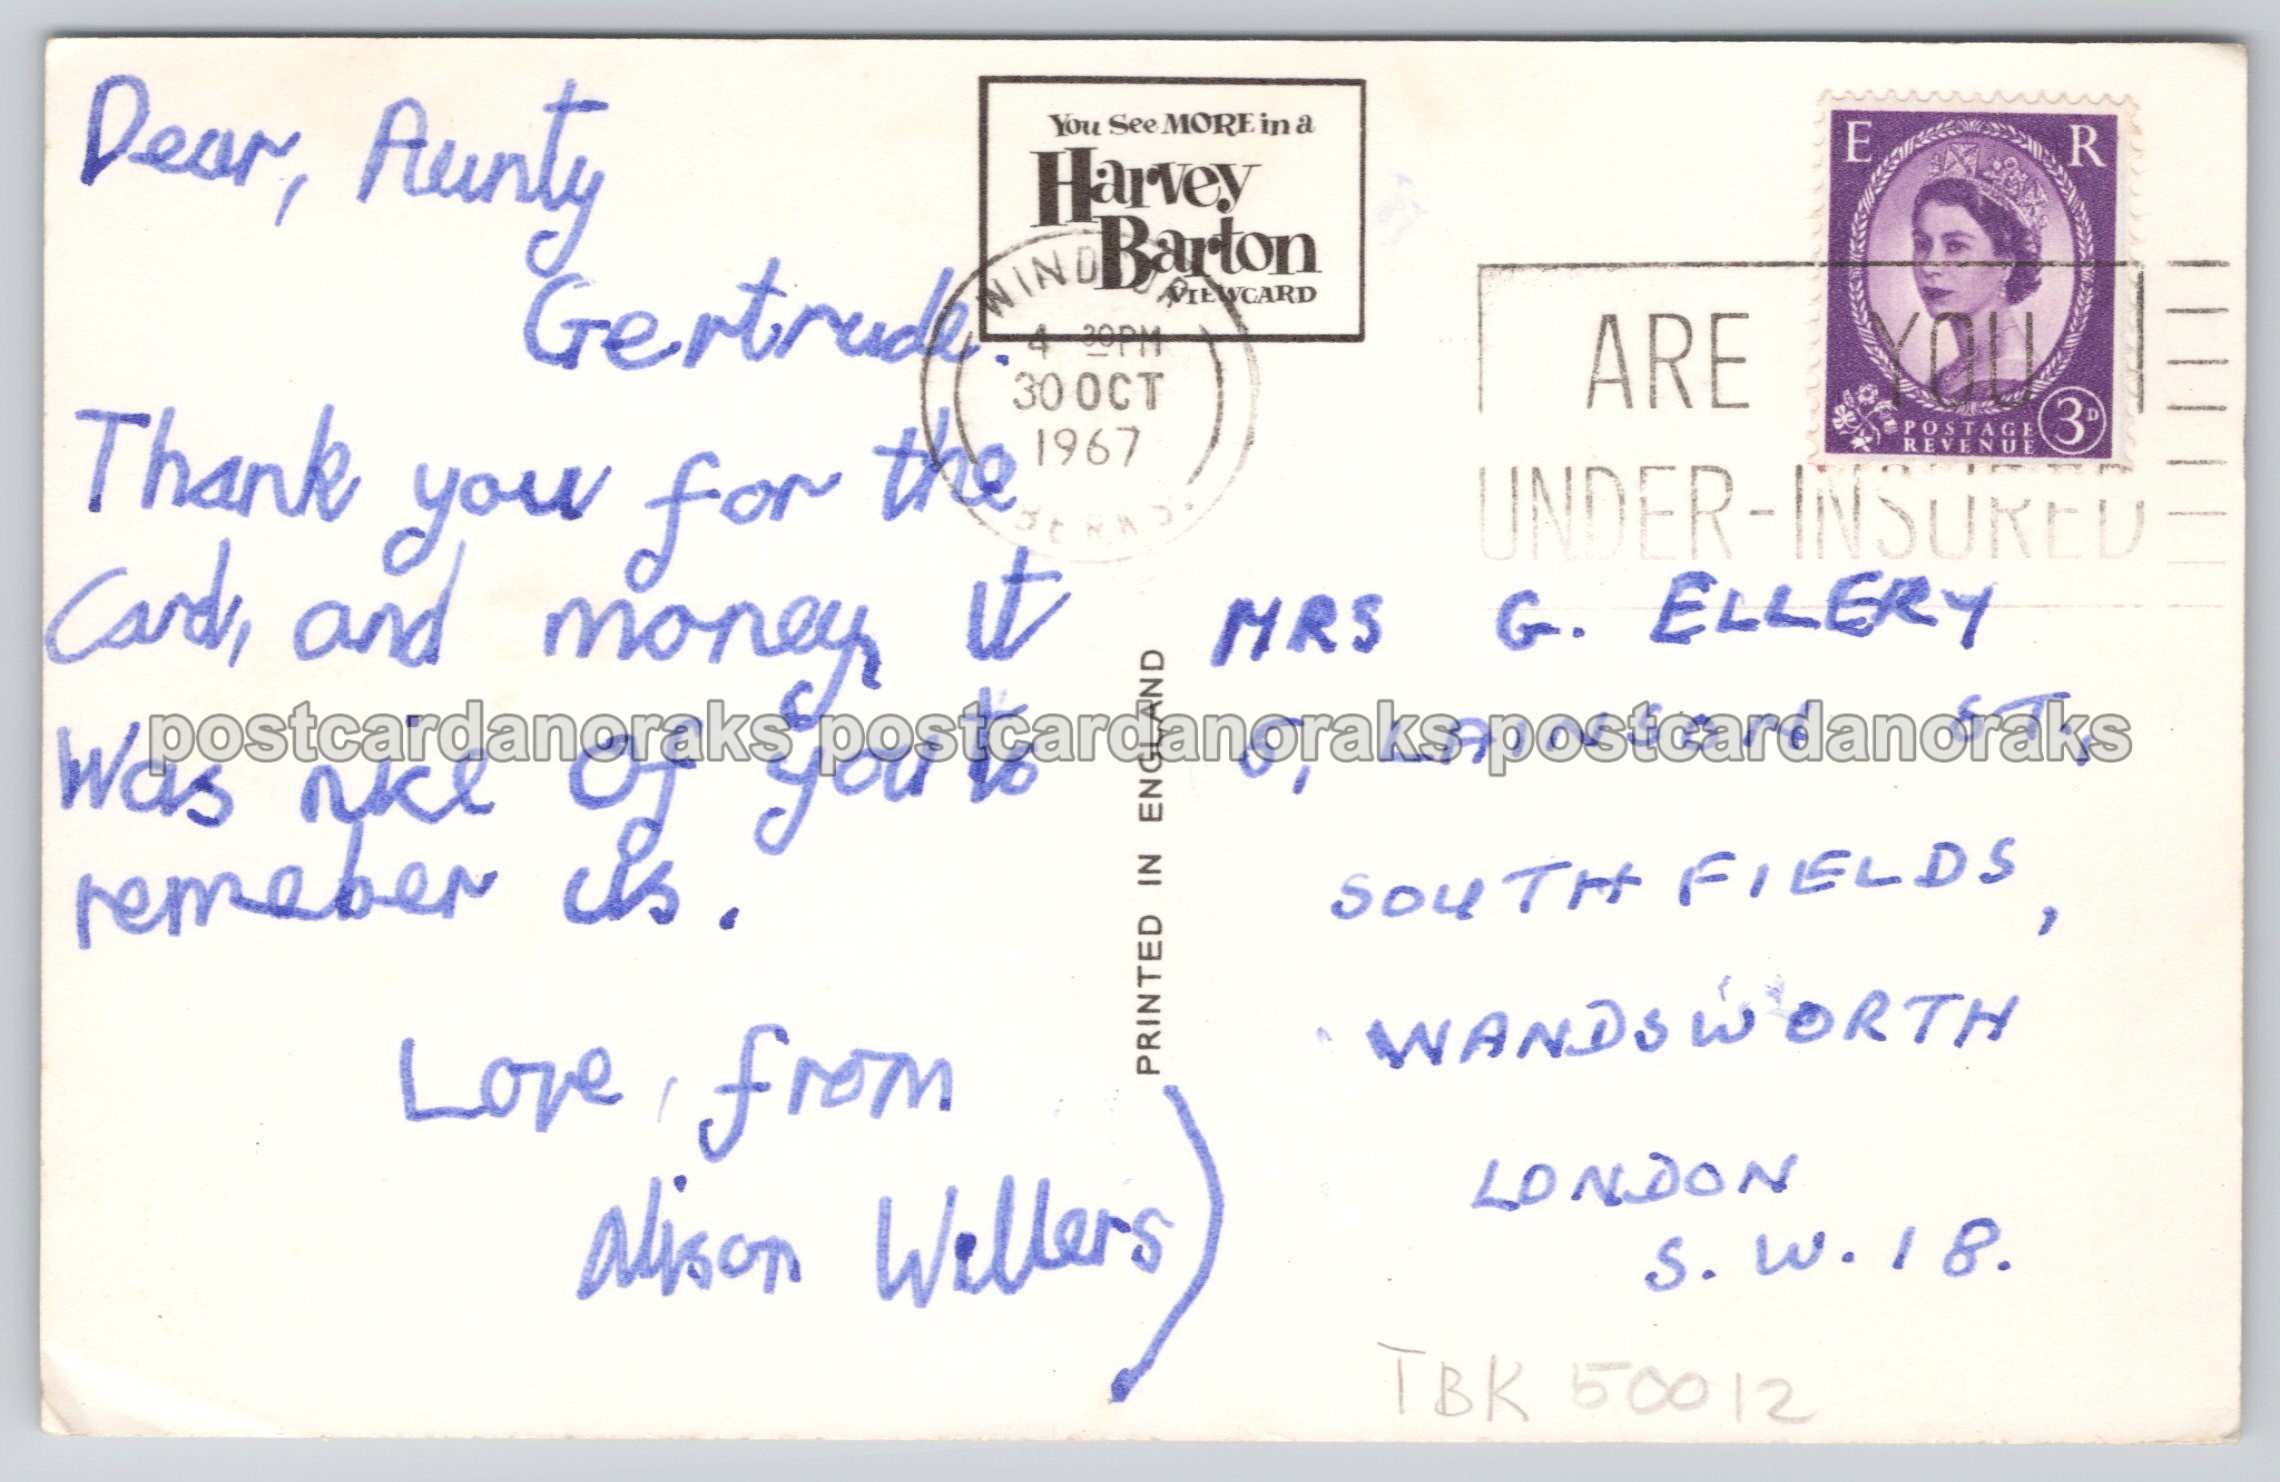 Dear, Aunty
Gertrude.
Thank you for the
Card, and money, it
Was nice Of you to
remeber us.
Love, from
Alison Willers
You See MORE in a
Harvey
Barton
VIEWCARD
WINDSOR
4 30PM
30 OCT
1967
BERKS.
E R
POSTAGE
REVENUE
3D
ARE YOU
UNDER-INSURED
PRINTED IN ENGLAND
MRS G. ELLERY
LAINSON ST.,
SOUTH FIELDS,
WANDSWORTH
LONDON
S.W.18.
TBK 50012
postcardanoraks postcardanoraks postcardanoraks